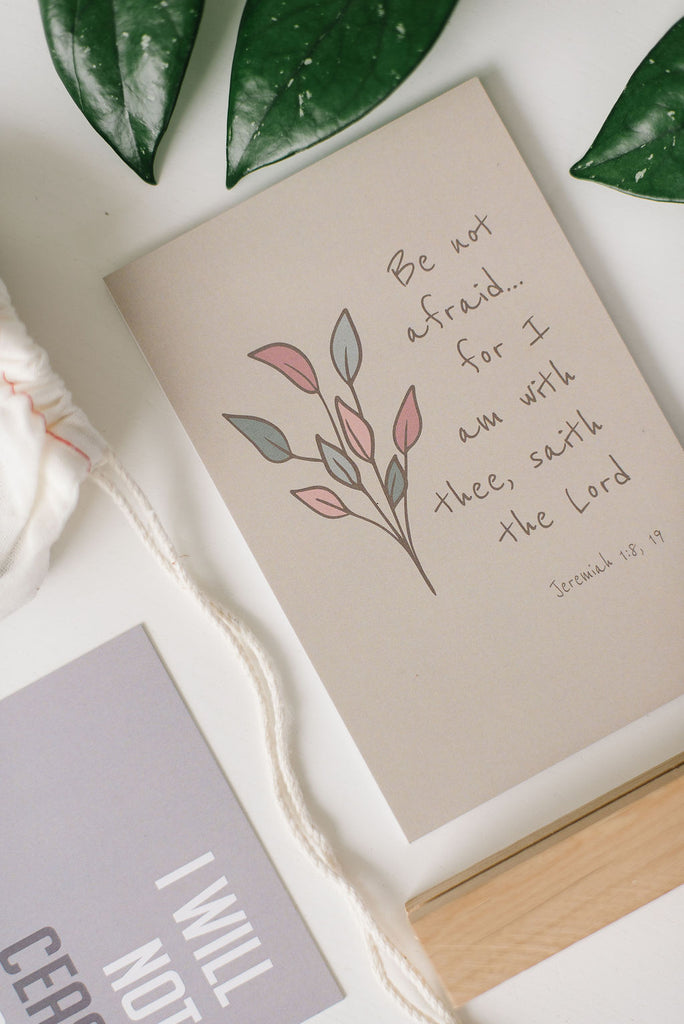 Be not
afraid...
for I
am with
thee, saith
the Lord
Jeremiah 1:8, 19
I WILL
NOT